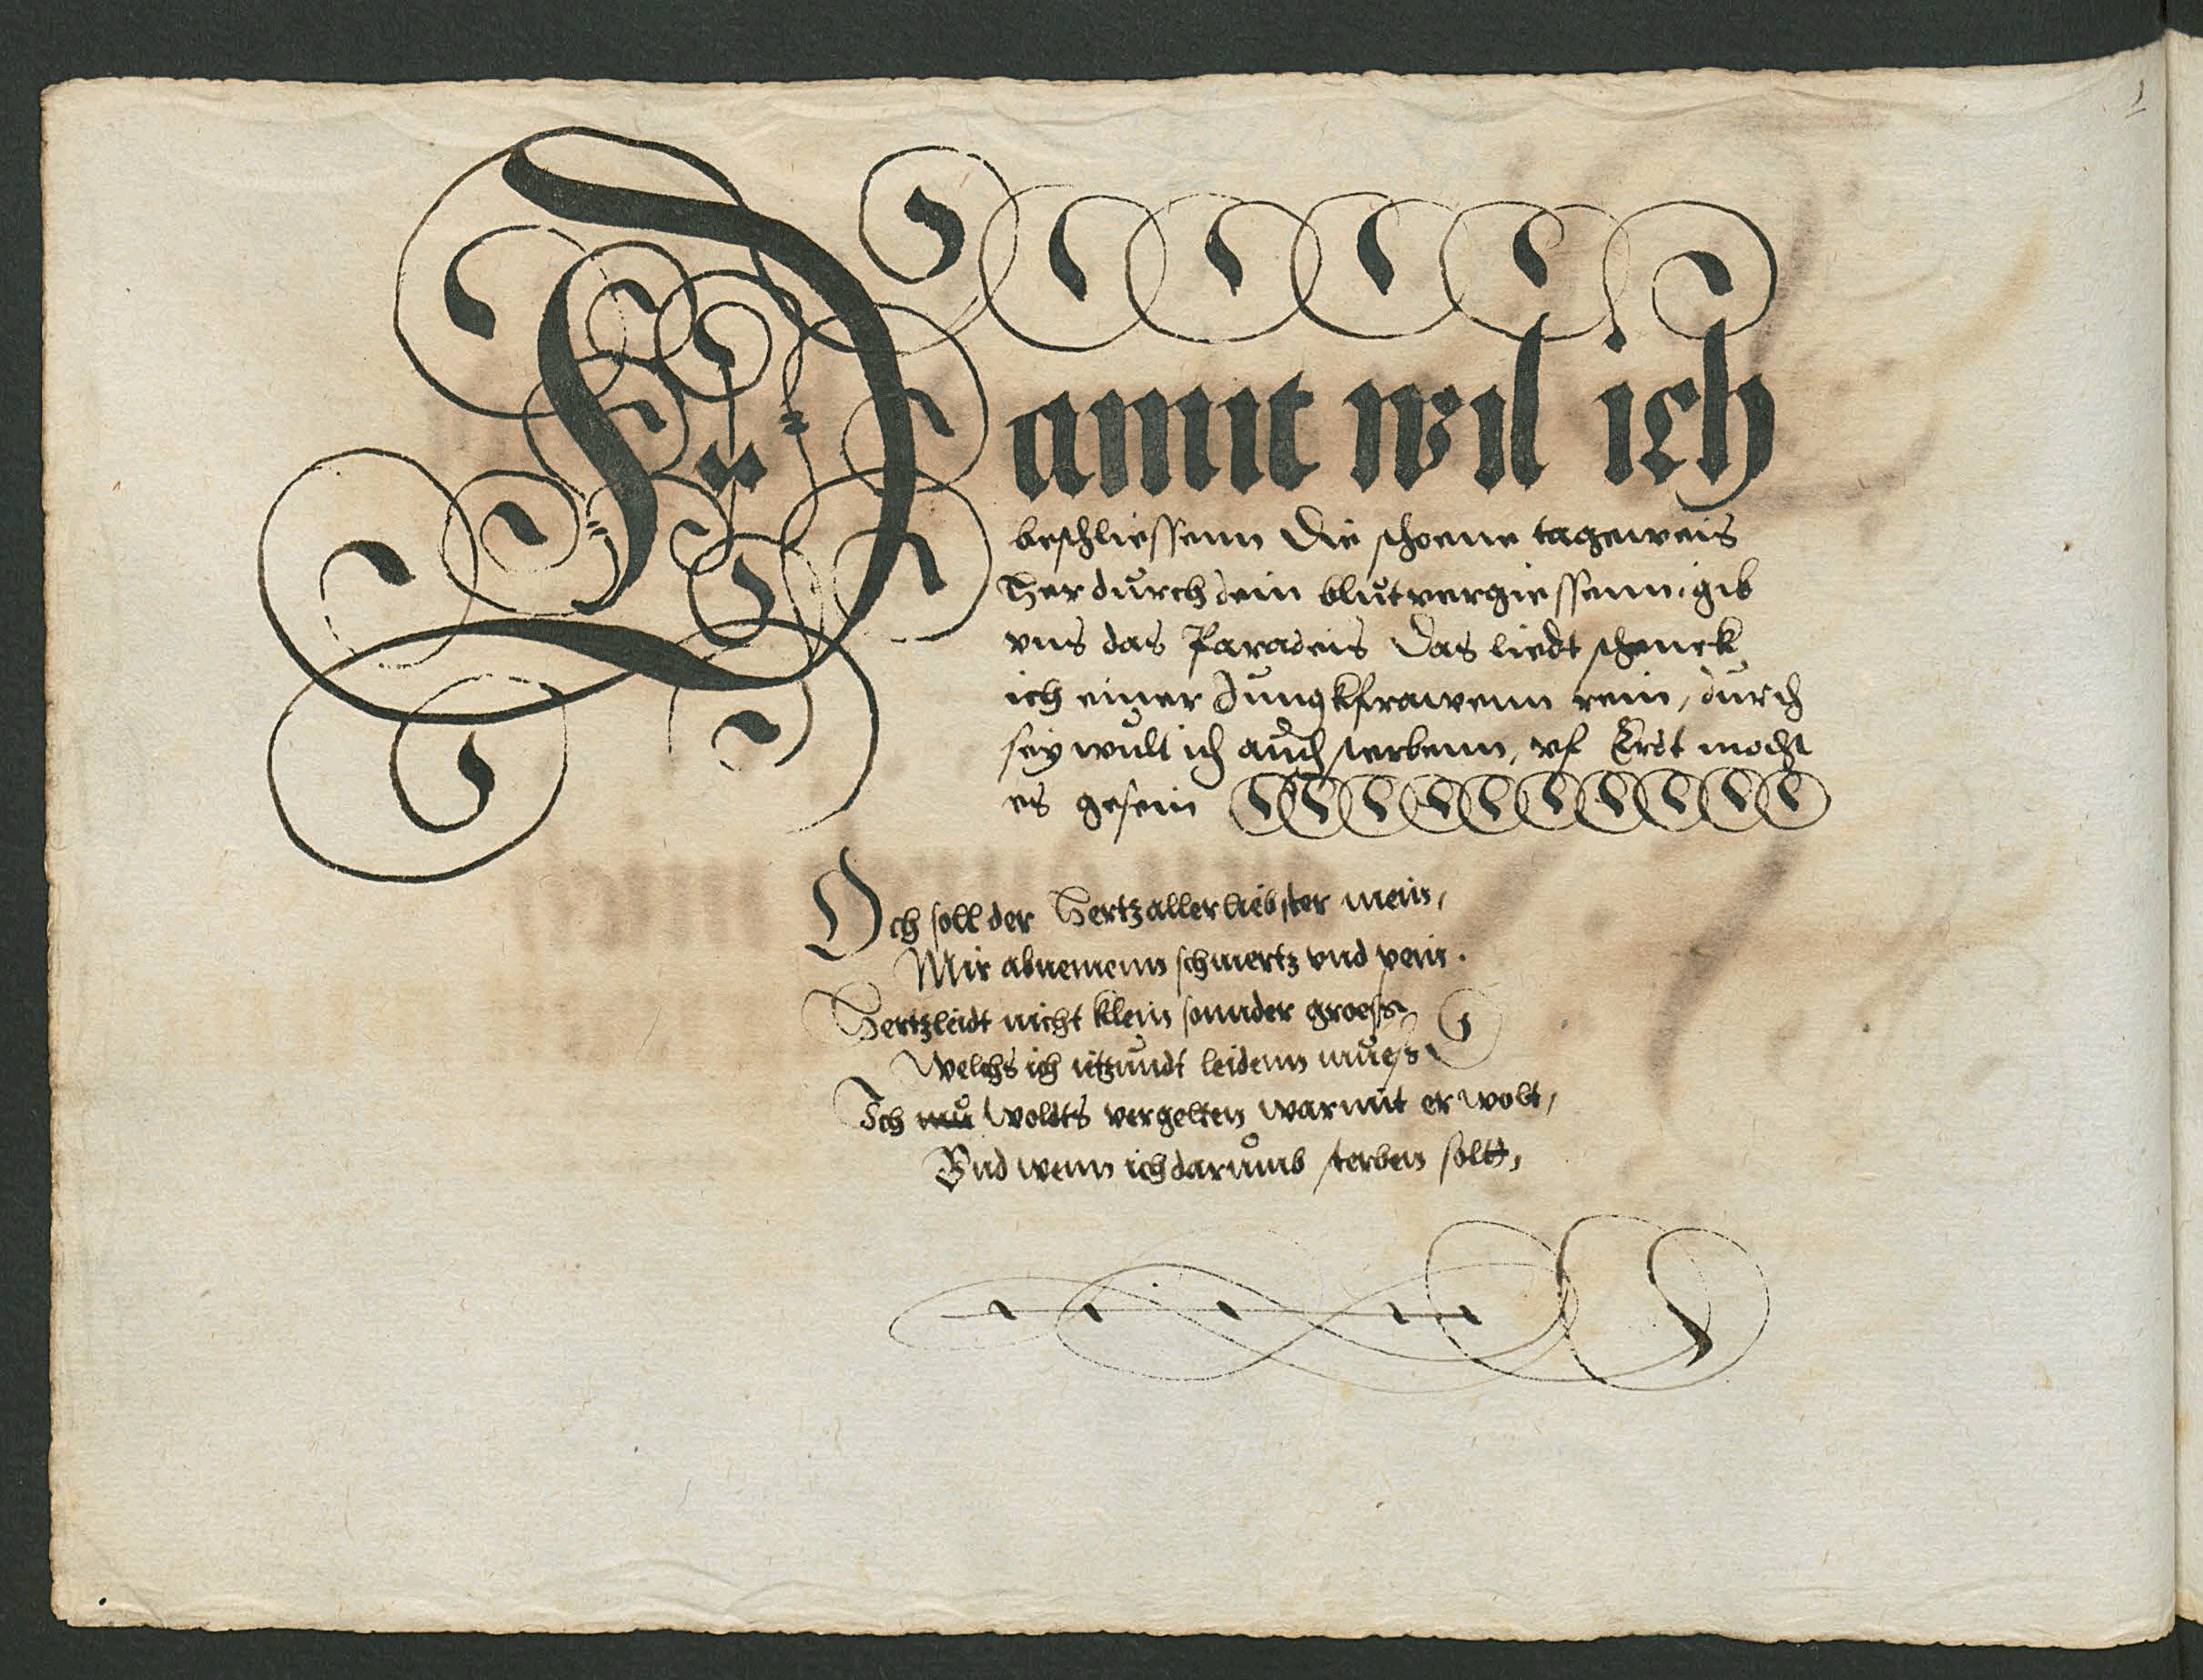 1
Damit wil ich
beschliessenn Die schoene tageweis
Her durch dein blutvergiessenn, gib
vns das Paradeis Das liedt schenck
ich einer Jungkfrawenn rein, durch
sey wult ich auch sterbenn, vf Erst mocht
es gesein
Och soll der Hertzallerliebster mein,
Mir abnemenn schmertz vnd pein.
Hertzleidt nicht klein sonnder groess
Welchs ich itzundt leidenn muess
Ich woldts vergelten warmit er wolt,
Vnd wenn ich darumb sterben soltt,